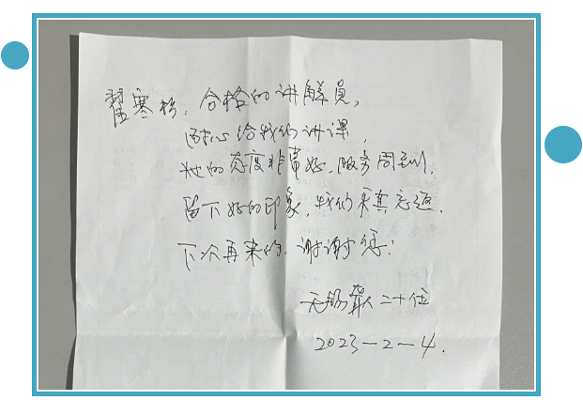 翟寒松,合格的讲解員,
耐心给我们讲课,
她的态度非常好,服务周到,
留下好的印象,我们来真
下次再来的,谢谢您!
无锡 二十位
2023-2-4.